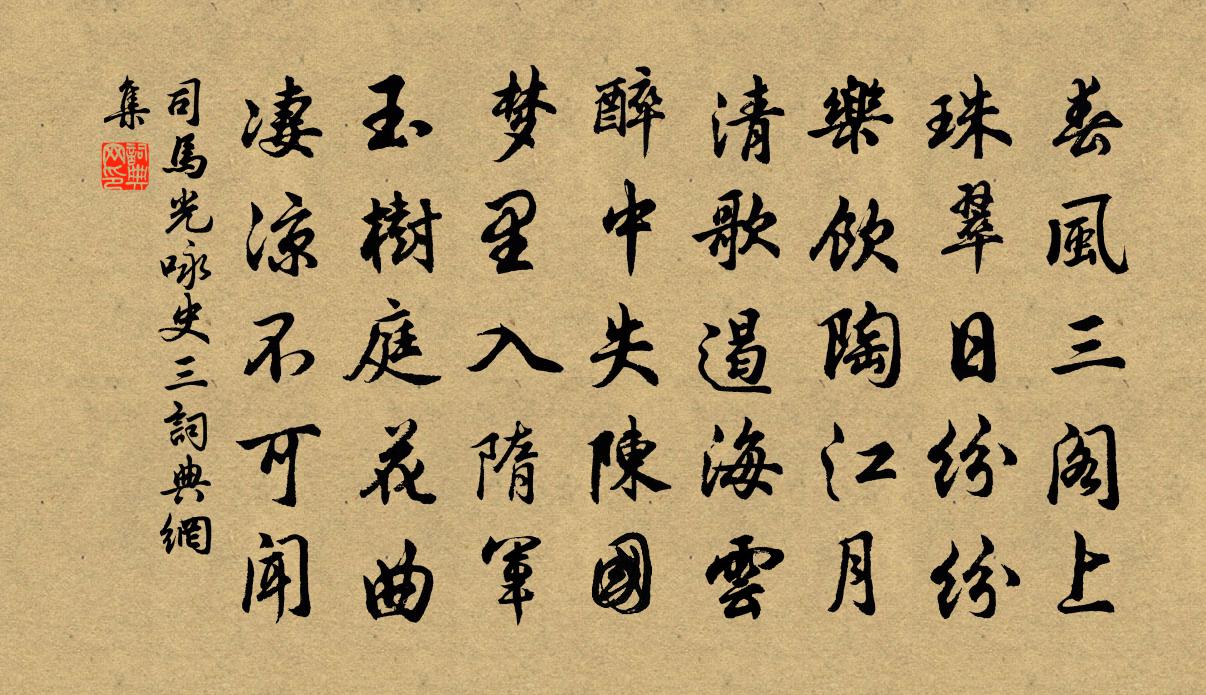 春風三阁上
珠翠日纷纷
樂飲陶江月
清歌遏海雲
醉中失陳國
梦里入隋軍
玉樹庭花曲
凄涼不可聞
司馬光咏史三詞典網
集
詞典
网印